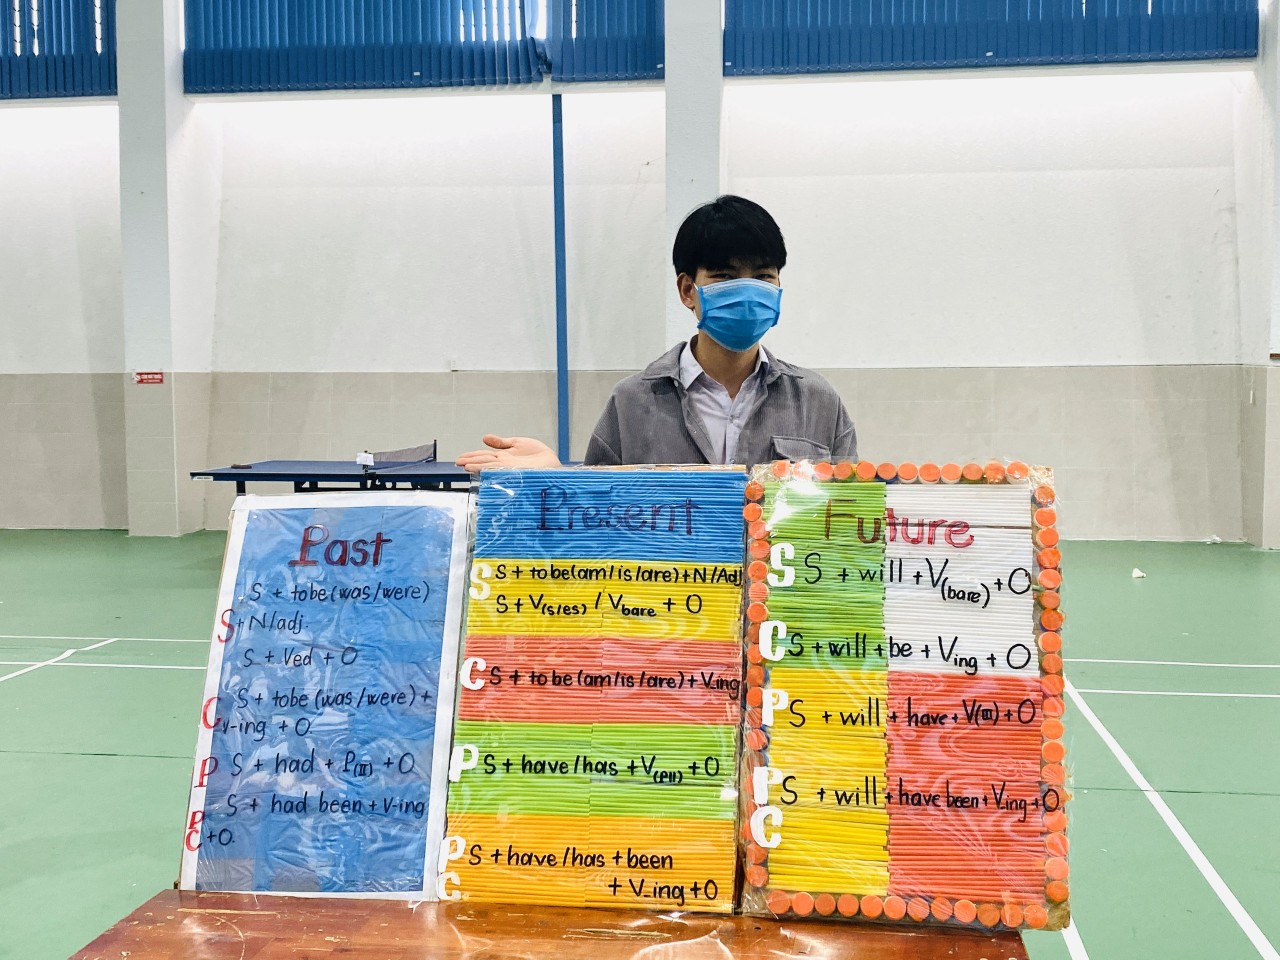 Past
S + tobe(was/were)
S + N/adj.
S + Ved + O
S + tobe (was/were) +
C v-ing + O.
P S + had + P(II) + O
S + had been + V-ing
P
C +O.
Present
S S + tobe(am/is/are)+N/Adj
S + V(s/es) / Vbare + O
C S + tobe(am/is/are)+V_ing
P S + have/has +V(PII) +O
P S +have/has +been
C + V_ing +O
Future
S S + will + V(bare) + O
C S + will + be + Ving + O
P S + will + have + V(III) + O
P S + will + have been + Ving + O
C